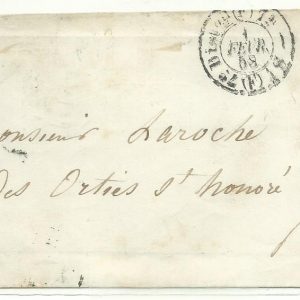 1
FEVR.
68
onsieur Laroché
des Orties St honoré